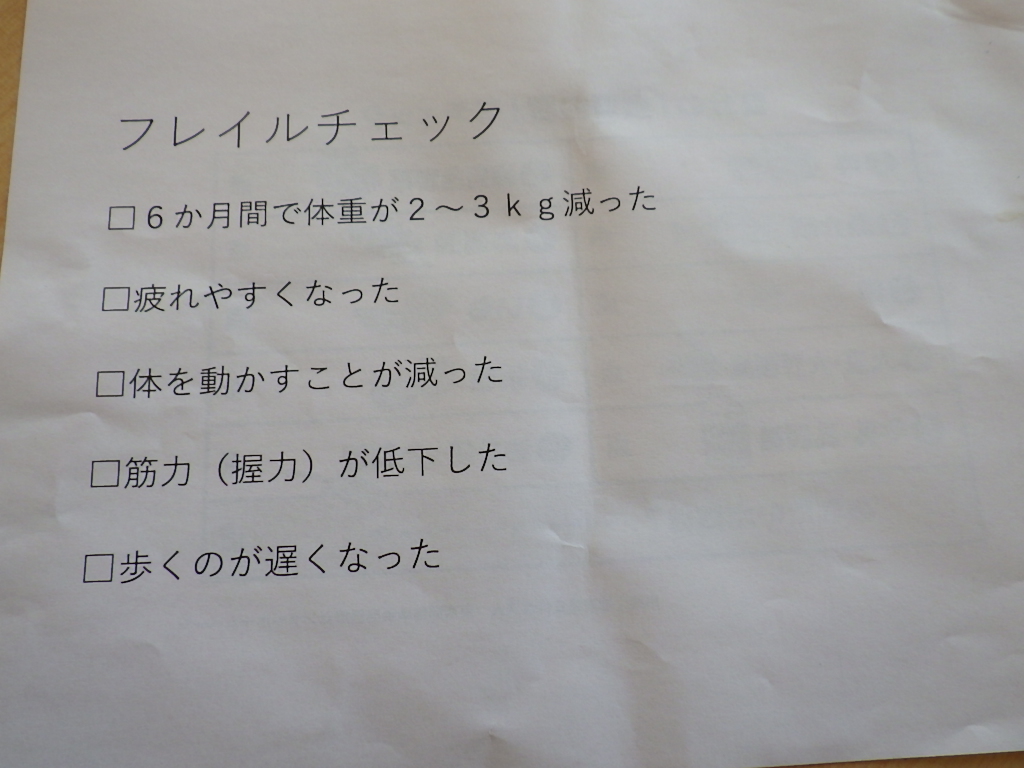 フレイルチェック
□６か月間で体重が２～３ｋｇ減った
□疲れやすくなった
□体を動かすことが減った
□筋力（握力）が低下した
□歩くのが遅くなった